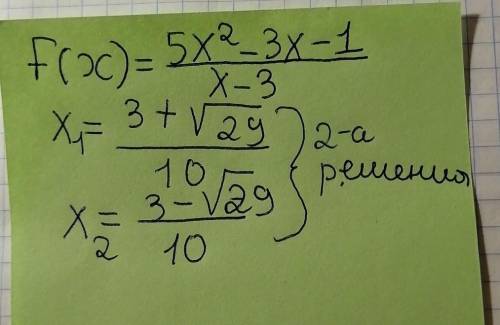 f(x) = (5x² - 3x - 1)/(x - 3)
x₁ = (3 + √29)/10
x₂ = (3 - √29)/10
} 2-а
решения